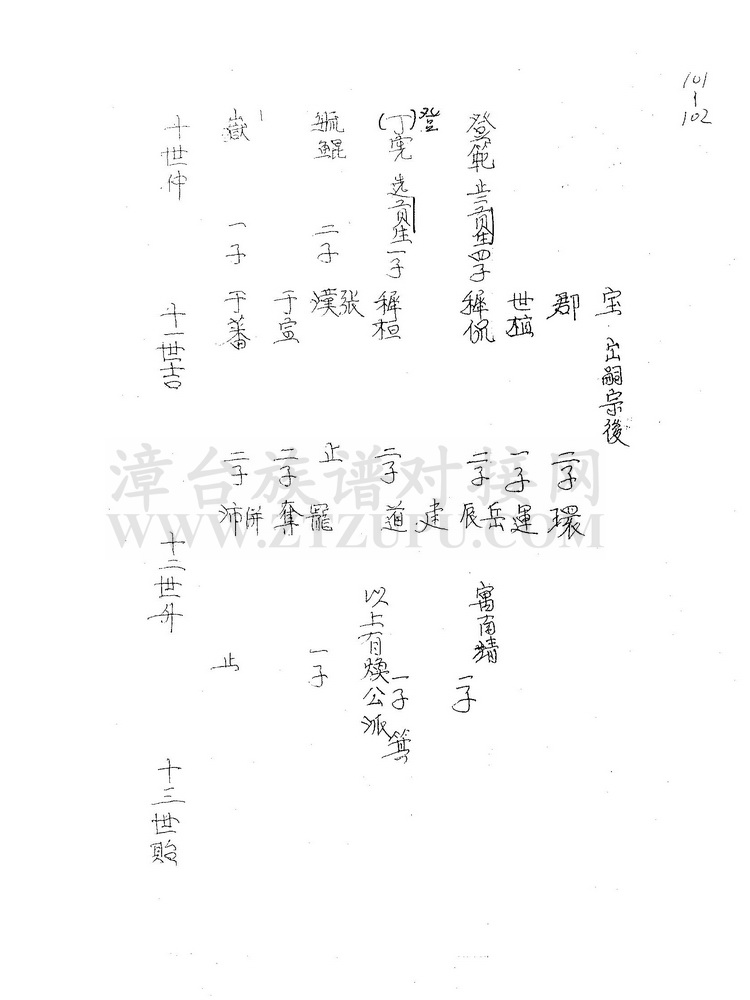 101
|
102
宝 出嗣宗後
郡 二子 環
世植 一子 運
登範 止 貢生 四子 穉侃 二子 岳 辰
寓南靖 二子
登
(丁)亮 貢生 一子 穉桓 二子 建 道
一子
以上有煥公派
毓鯤 二子 張 漢 止
于宣 二子 罷 奪 一子
嶽 一子 于蕃 二子 併 沛 止
十世仲
十一世吉
十二世升
十三世貽
漳台族谱对接网
WWW.ZTZUPU.COM